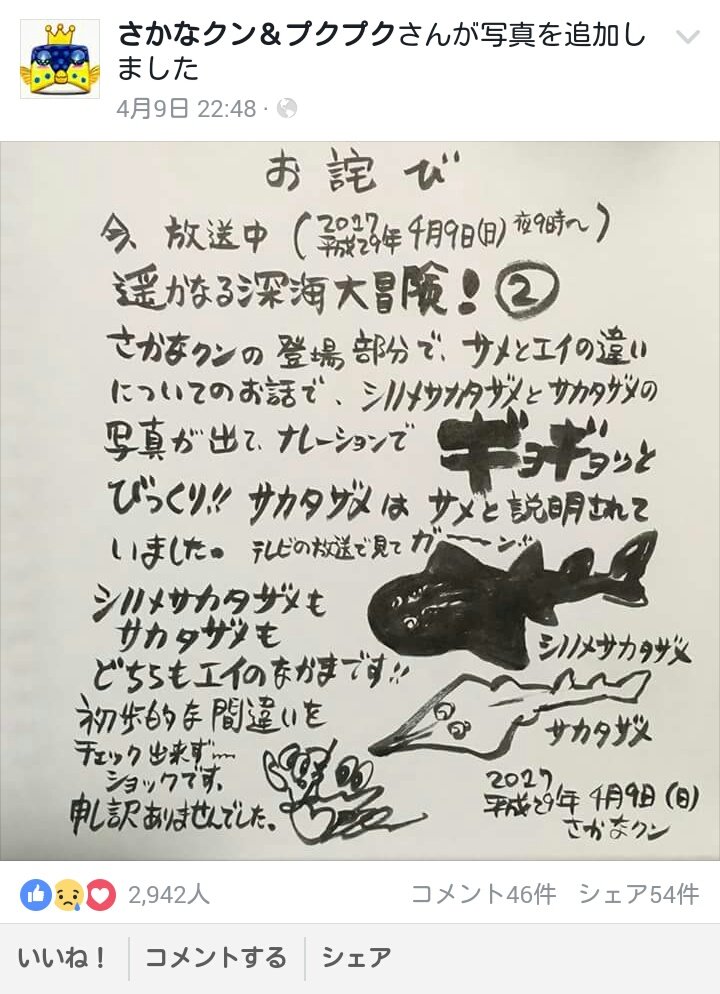 さかなクン＆プクプクさんが写真を追加し
ました
4月9日 22:48 ·
お詫び
今、放送中（2017 平成29年 4月9日(日)夜9時〜）
遥かなる深海大冒険！②
さかなクンの登場部分で、サメとエイの違い
についてのお話で、シノノメサカタザメとサカタザメの
写真が出て、ナレーションで ギョギョッと
びっくり!! サカタザメは サメと説明されて
いました。テレビの放送で見てガーーン!!
シノノメサカタザメも
サカタザメも
どちらもエイのなかまです!!
シノノメサカタザメ
初歩的な間違いを
サカタザメ
チェック出来ず…
ショックです。
申し訳ありませんでした。
2017
平成29年 4月9日(日)
さかなクン
2,942人 コメント46件 シェア54件
いいね！ コメントする シェア